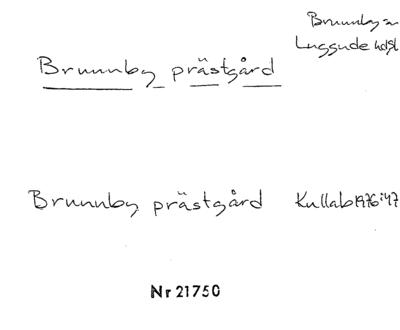 Brunnby sn
Luggude hd
Brunnby prästgård
Brunnby prästgård Kullab 1976:47
Nr 21750